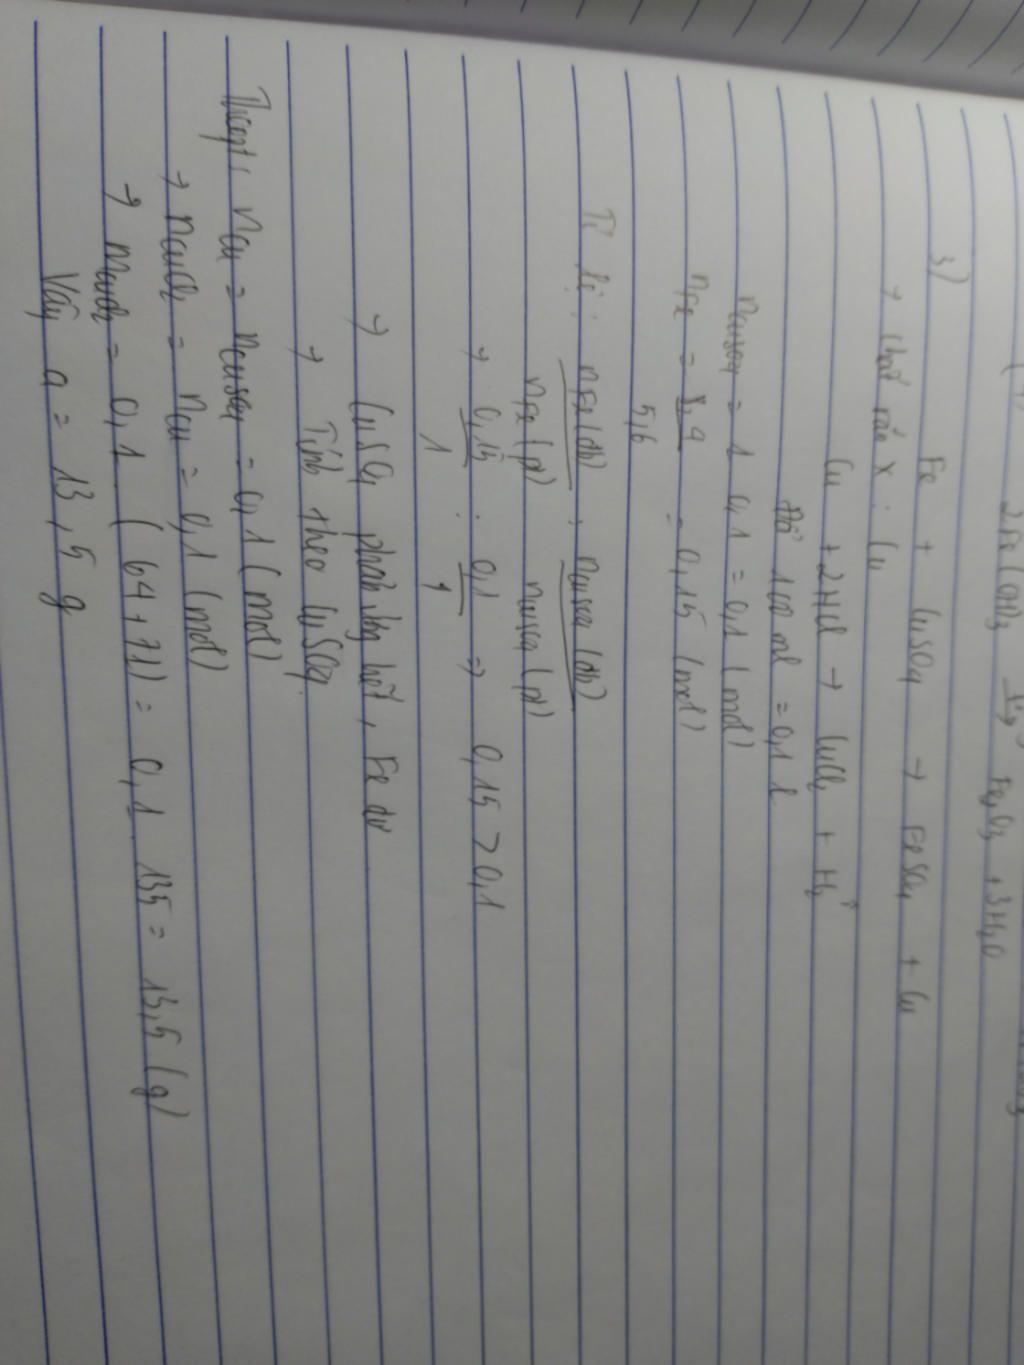 2Fe(OH)3 t°→ Fe2O3 + 3H2O
3) Fe + CuSO4 → FeSO4 + Cu
→ Chất rắn X : Cu
Cu + 2HCl → CuCl2 + H2↑
Đổi 100 ml = 0,1 l
nCuSO4 = 1 . 0,1 = 0,1 (mol)
nFe = 8,4 / 5,6 = 0,15 (mol)
Tỉ lệ : nFe(đb) / nFe(pt) : nCuSO4(đb) / nCuSO4(pt)
→ 0,15 / 1 : 0,1 / 1 => 0,15 > 0,1
→ CuSO4 phản ứng hết, Fe dư
→ Tính theo CuSO4
Theo pt: nCu = nCuSO4 = 0,1 (mol)
→ nCuCl2 = nCu = 0,1 (mol)
→ mCuCl2 = 0,1 (64+71) = 0,1 . 135 = 13,5 (g)
Vậy a = 13,5 g